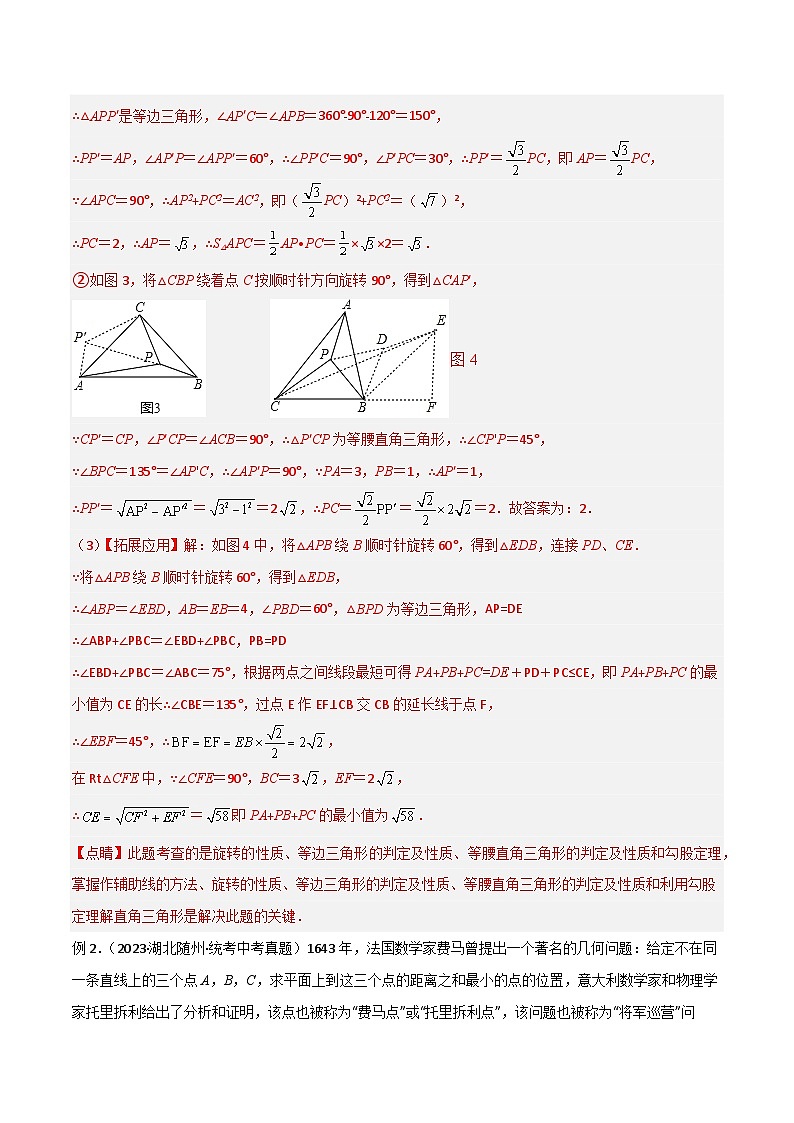 ∴△APP′是等边三角形，∠AP′C＝∠APB＝360°-90°-120°＝150°，
∴PP′＝AP，∠AP′P＝∠APP′＝60°，∴∠PP′C＝90°，∠P′PC＝30°，∴PP′＝√3/2 PC，即 AP＝√3/2 PC，
∵∠APC＝90°，∴AP²+PC²＝AC²，即（√3/2 PC）²+PC²＝（√7）²，
∴PC＝2，∴AP＝√3，∴S△APC＝1/2 AP•PC＝1/2×√3×2＝√3．
②如图 3，将△CBP 绕着点 C 按顺时针方向旋转 90°，得到△CAP′，
C
P′
P
A
B
图3
A
E
D
P
C
B
F
图 4
∵CP′＝CP，∠P′CP＝∠ACB＝90°，∴△P′CP 为等腰直角三角形，∴∠CP′P＝45°，
∵∠BPC＝135°＝∠AP'C，∴∠AP′P＝90°，∵PA＝3，PB＝1，∴AP′＝1，
∴PP′＝√(AP²－AP′²)＝√(3²－1²)＝2√2，∴PC＝√2/2 PP′＝√2/2×2√2＝2．故答案为：2．
（3）【拓展应用】解：如图 4 中，将△APB 绕 B 顺时针旋转 60°，得到△EDB，连接 PD、CE．
∵将△APB 绕 B 顺时针旋转 60°，得到△EDB，
∴∠ABP＝∠EBD，AB＝EB＝4，∠PBD＝60°，△BPD 为等边三角形，AP=DE
∴∠ABP+∠PBC＝∠EBD+∠PBC，PB=PD
∴∠EBD+∠PBC＝∠ABC＝75°，根据两点之间线段最短可得 PA+PB+PC=DE＋PD＋PC≤CE，即 PA+PB+PC 的最
小值为 CE 的长∴∠CBE＝135°，过点 E 作 EF⊥CB 交 CB 的延长线于点 F，
∴∠EBF＝45°，∴BF＝EF＝EB×√2/2＝2√2，
在 Rt△CFE 中，∵∠CFE＝90°，BC＝3√2，EF＝2√2，
∴CE＝√(CF²＋EF²)＝√58即 PA+PB+PC 的最小值为√58．
【点睛】此题考查的是旋转的性质、等边三角形的判定及性质、等腰直角三角形的判定及性质和勾股定理，
掌握作辅助线的方法、旋转的性质、等边三角形的判定及性质、等腰直角三角形的判定及性质和利用勾股
定理解直角三角形是解决此题的关键．
例 2．（2023·湖北随州·统考中考真题）1643 年，法国数学家费马曾提出一个著名的几何问题：给定不在同
一条直线上的三个点 A，B，C，求平面上到这三个点的距离之和最小的点的位置，意大利数学家和物理学
家托里拆利给出了分析和证明，该点也被称为“费马点”或“托里拆利点”，该问题也被称为“将军巡营”问